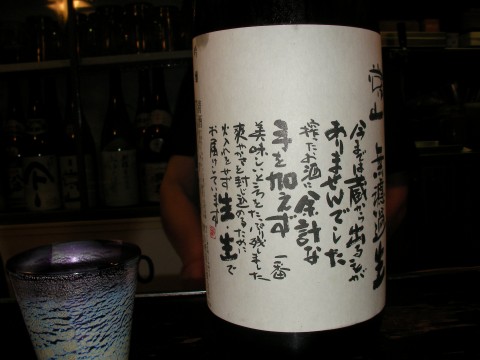 常山 無濾過生
今までは蔵から出ることが
ありませんでした
搾ったお酒に余計な
手を加えず 一番
美味しいところだけ残しました
爽やかさを封じ込めるために
火入れをせず生・生で
お届けしています